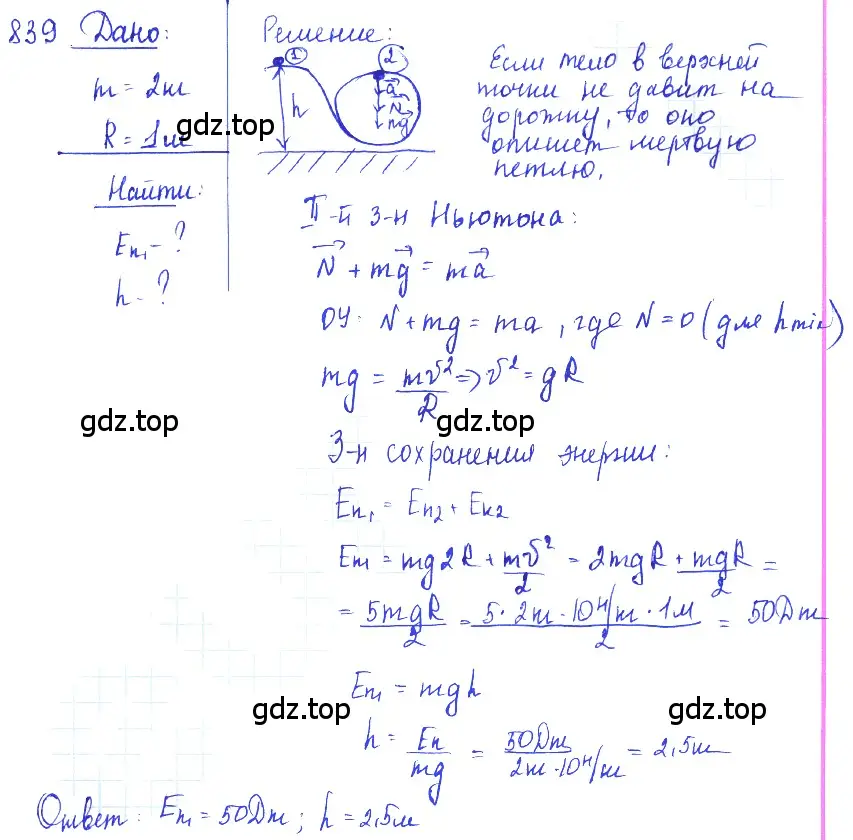 839 Дано:
m = 2кг
R = 1м
Найти:
Eп₁ - ?
h - ?
Решение:
1
2
h
a⃗
N⃗
mg⃗
Если тело в верхней
точки не давит на
дорожку, то оно
опишет мертвую
петлю.
II-й з-н Ньютона:
N⃗ + mg⃗ = ma⃗
ОУ: N + mg = ma, где N = 0 (для hmin)
mg = mv²/R => v² = gR
З-н сохранения энергии:
Eп₁ = Eп₂ + Eк₂
Eп₁ = mg2R + mv²/2 = 2mgR + mgR/2 =
= 5mgR/2 = 5·2кг·10Н/кг·1м/2 = 50Дж
Eп₁ = mgh
h = Eп/mg = 50Дж/2кг·10Н/кг = 2,5м
Ответ: Eп₁ = 50Дж; h = 2,5м
gdz.top
gdz.top
gdz.top
gdz.top
gdz.top